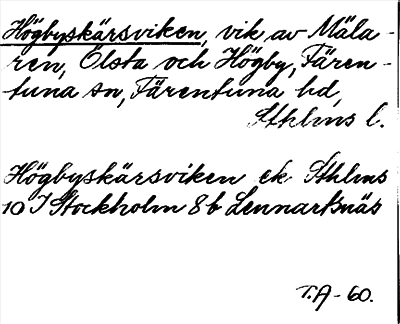 Högbyskärsviken, vik av Mäla-
ren, Ölsta och Högby, Fären-
tuna sn, Färentuna hd,
Sthlms l.
Högbyskärsviken ek Sthlms
10 I Stockholm 8b Lennartsnäs
T.A-60.